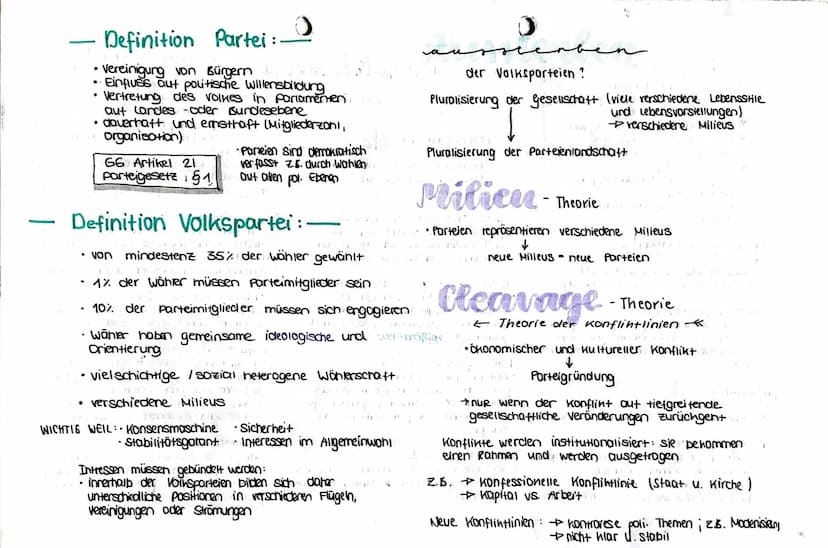 — Definition Partei: —
• Vereinigung von Bürgern
• Einfluss auf politische Willensbildung
• Vertretung des Volkes in Parlamenten
auf Landes- oder Bundesebene
• dauerhaft und ernsthaft (Mitgliederzahl,
Organisation)
GG Artikel 21
Parteigesetz, §1
• Parteien sind demokratisch
verfasst z.B. durch Wahlen
auf allen pol. Ebenen
— Definition Volkspartei: —
• von mindestenz 35% der Wähler gewählt
• 1% der Wähler müssen Parteimitglieder sein
• 10% der Parteimitglieder müssen sich engagieren
• Wähler haben gemeinsame ideologische und
Orientierung
• vielschichtige / sozial heterogene Wählerschaft
• verschiedene Milieus
WICHTIG WEIL: • Konsensmaschine • Sicherheit
• Stabilitätsgarant • Interessen im Allgemeinwohl
Intressen müssen gebündelt werden:
• innerhalb der Volksparteien bilden sich daher
unterschiedliche Positionen in verschiedenen Flügeln,
Vereinigungen oder Strömungen
aussterben
der Volksparteien?
Pluralisierung der Gesellschaft (viele verschiedene Lebensstile
und Lebensvorstellungen)
→ verschiedene Milieus
↓
Pluralisierung der Parteienlandschaft
Milieu - Theorie
• Parteien repräsentieren verschiedene Milieus
↓
neue Milieus = neue Parteien
Cleavage - Theorie
← Theorie der Konfliktlinien →
• ökonomischer und kultureller Konflikt
↓
Parteigründung
→ nur wenn der Konflikt auf tiefgreifende
gesellschaftliche Veränderungen zurückgeht
Konflikte werden institutionalisiert: sie bekommen
einen Rahmen und werden ausgetragen
z.B. → Konfessionelle Konfliktlinie (Staat u. Kirche)
→ Kapital vs. Arbeit
Neue Konfliktlinien: → kontroverse poli. Themen; z.B.
→ nicht klar u. stabil